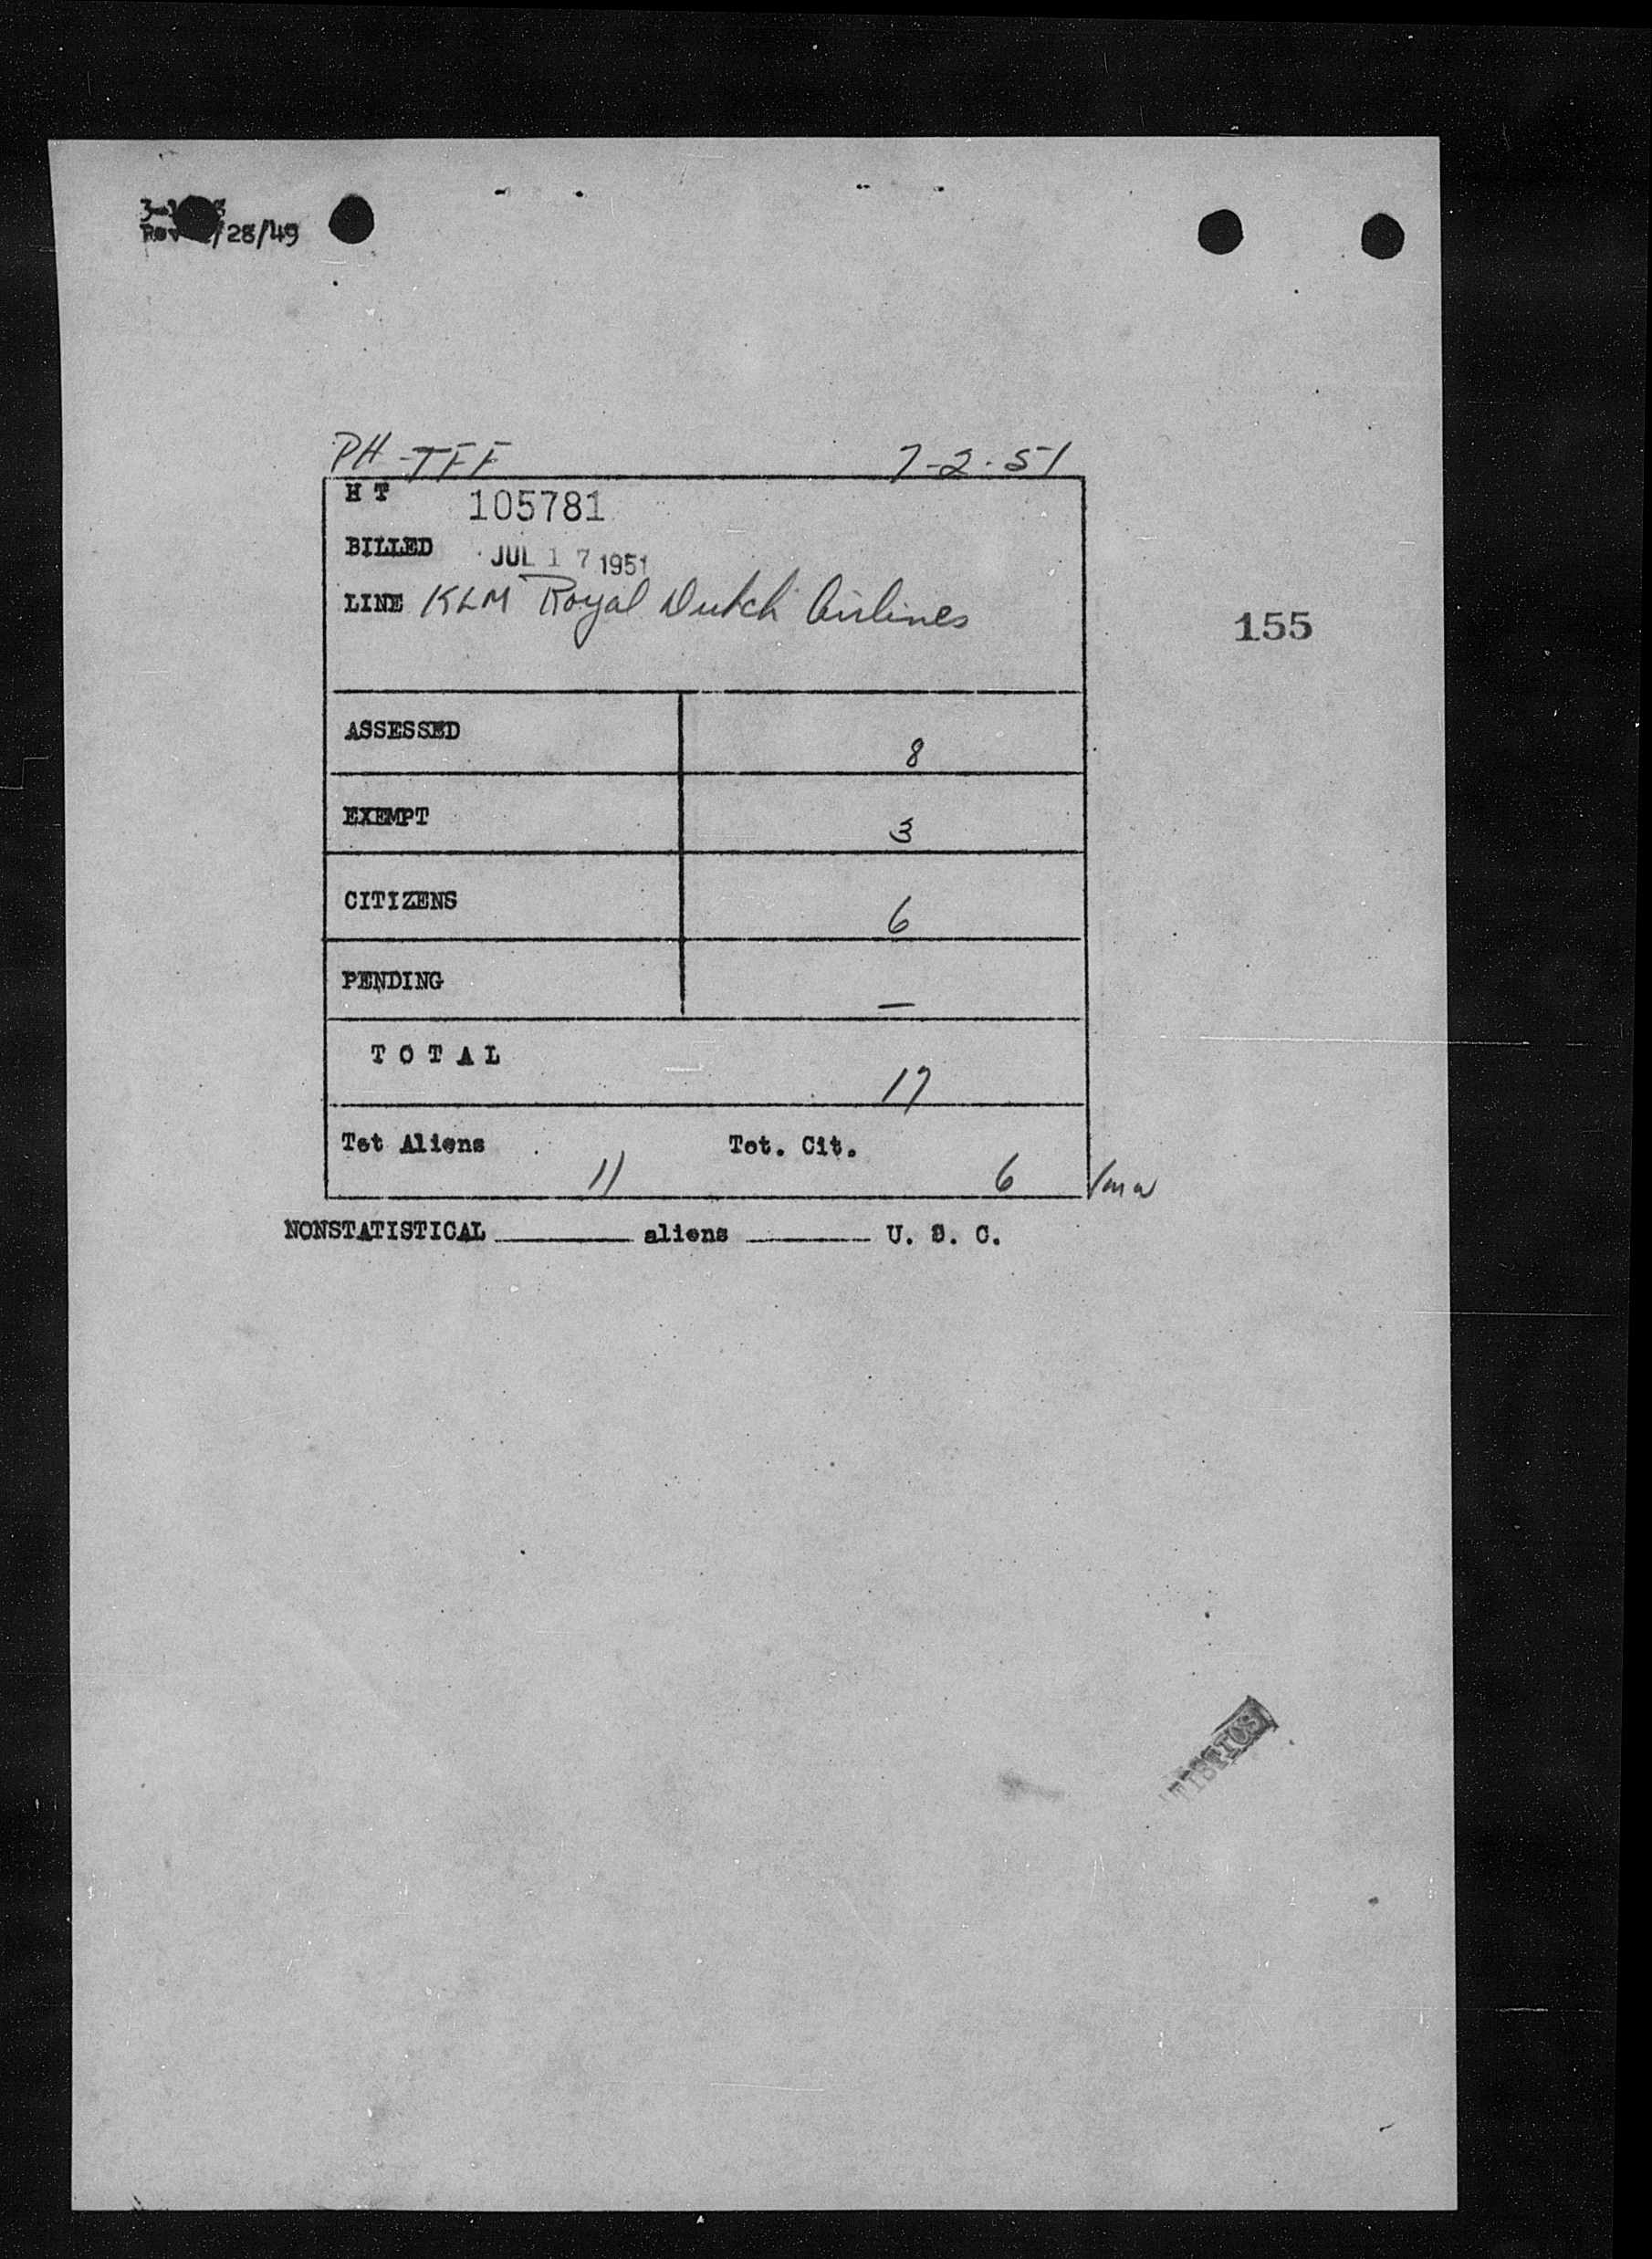 Rev /28/49
PH-TFF 7-2-51
H T 105781
BILLED JUL 17 1951
LINE KLM Royal Dutch Airlines
155
ASSESSED 8
EXEMPT 3
CITIZENS 6
PENDING —
T O T A L 17
Tot Aliens 11 Tot. Cit. 6
NONSTATISTICAL ______ aliens ______ U. S. C.
TISTICS